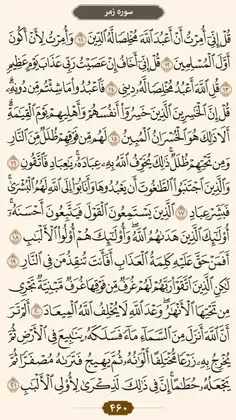 سوره زمر
قُلْ إِنِّىٓ أُمِرْتُ أَنْ أَعْبُدَ ٱللَّهَ مُخْلِصًا لَّهُ ٱلدِّينَ ۝١١ وَأُمِرْتُ لِأَنْ أَكُونَ
أَوَّلَ ٱلْمُسْلِمِينَ ۝١٢ قُلْ إِنِّىٓ أَخَافُ إِنْ عَصَيْتُ رَبِّى عَذَابَ يَوْمٍ عَظِيمٍ
۝١٣ قُلِ ٱللَّهَ أَعْبُدُ مُخْلِصًا لَّهُۥ دِينِى ۝١٤ فَٱعْبُدُوا۟ مَا شِئْتُم مِّن دُونِهِۦ ۗ
قُلْ إِنَّ ٱلْخَـٰسِرِينَ ٱلَّذِينَ خَسِرُوٓا۟ أَنفُسَهُمْ وَأَهْلِيهِمْ يَوْمَ ٱلْقِيَـٰمَةِ ۗ
أَلَا ذَٰلِكَ هُوَ ٱلْخُسْرَانُ ٱلْمُبِينُ ۝١٥ لَهُم مِّن فَوْقِهِمْ ظُلَلٌ مِّنَ ٱلنَّارِ
وَمِن تَحْتِهِمْ ظُلَلٌ ۚ ذَٰلِكَ يُخَوِّفُ ٱللَّهُ بِهِۦ عِبَادَهُۥ ۚ يَـٰعِبَادِ فَٱتَّقُونِ ۝١٦
وَٱلَّذِينَ ٱجْتَنَبُوا۟ ٱلطَّـٰغُوتَ أَن يَعْبُدُوهَا وَأَنَابُوٓا۟ إِلَى ٱللَّهِ لَهُمُ ٱلْبُشْرَىٰ ۚ
فَبَشِّرْ عِبَادِ ۝١٧ ٱلَّذِينَ يَسْتَمِعُونَ ٱلْقَوْلَ فَيَتَّبِعُونَ أَحْسَنَهُۥٓ ۚ
أُو۟لَـٰٓئِكَ ٱلَّذِينَ هَدَىٰهُمُ ٱللَّهُ ۖ وَأُو۟لَـٰٓئِكَ هُمْ أُو۟لُوا۟ ٱلْأَلْبَـٰبِ ۝١٨
أَفَمَنْ حَقَّ عَلَيْهِ كَلِمَةُ ٱلْعَذَابِ أَفَأَنتَ تُنقِذُ مَن فِى ٱلنَّارِ ۝١٩
لَـٰكِنِ ٱلَّذِينَ ٱتَّقَوْا۟ رَبَّهُمْ لَهُمْ غُرَفٌ مِّن فَوْقِهَا غُرَفٌ مَّبْنِيَّةٌ تَجْرِى
مِن تَحْتِهَا ٱلْأَنْهَـٰرُ ۖ وَعْدَ ٱللَّهِ ۖ لَا يُخْلِفُ ٱللَّهُ ٱلْمِيعَادَ ۝٢٠ أَلَمْ تَرَ
أَنَّ ٱللَّهَ أَنزَلَ مِنَ ٱلسَّمَآءِ مَآءً فَسَلَكَهُۥ يَنَـٰبِيعَ فِى ٱلْأَرْضِ ثُمَّ
يُخْرِجُ بِهِۦ زَرْعًا مُّخْتَلِفًا أَلْوَٰنُهُۥ ثُمَّ يَهِيجُ فَتَرَىٰهُ مُصْفَرًّا ثُمَّ
يَجْعَلُهُۥ حُطَـٰمًا ۚ إِنَّ فِى ذَٰلِكَ لَذِكْرَىٰ لِأُو۟لِى ٱلْأَلْبَـٰبِ ۝٢١
۴۶۰